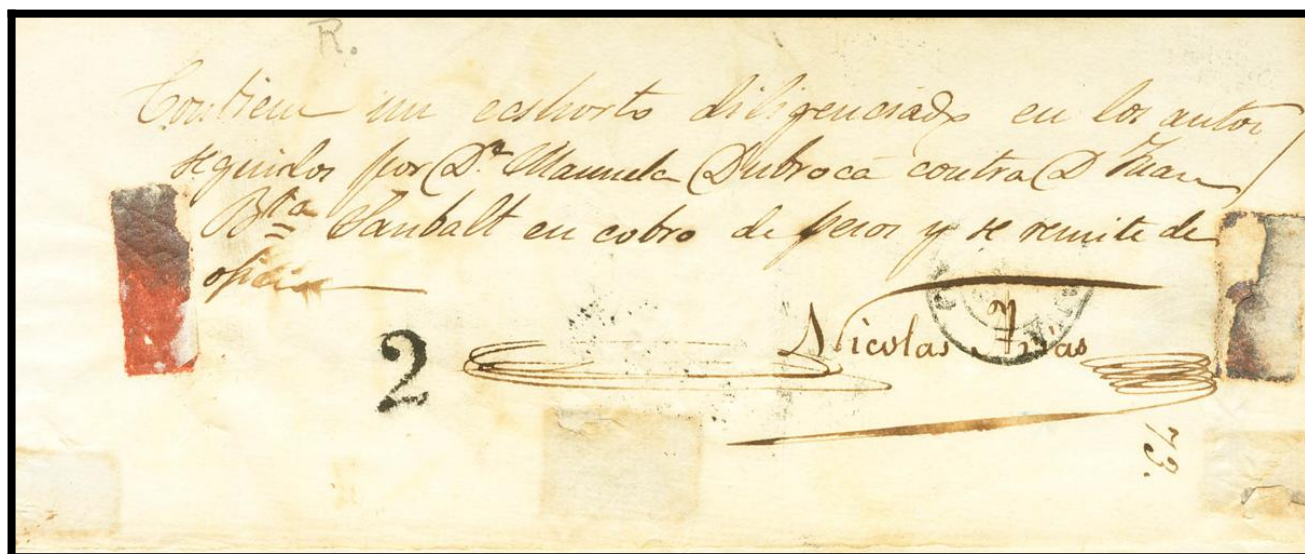 R.
Contiene un ecshorto diligenciado en los autos
seguidos por D.ª Manuela Dubroca contra D Juan
Bta Sanbalt en cobro de pesos y se remite de
oficio
2
Nicolas Frias
73.